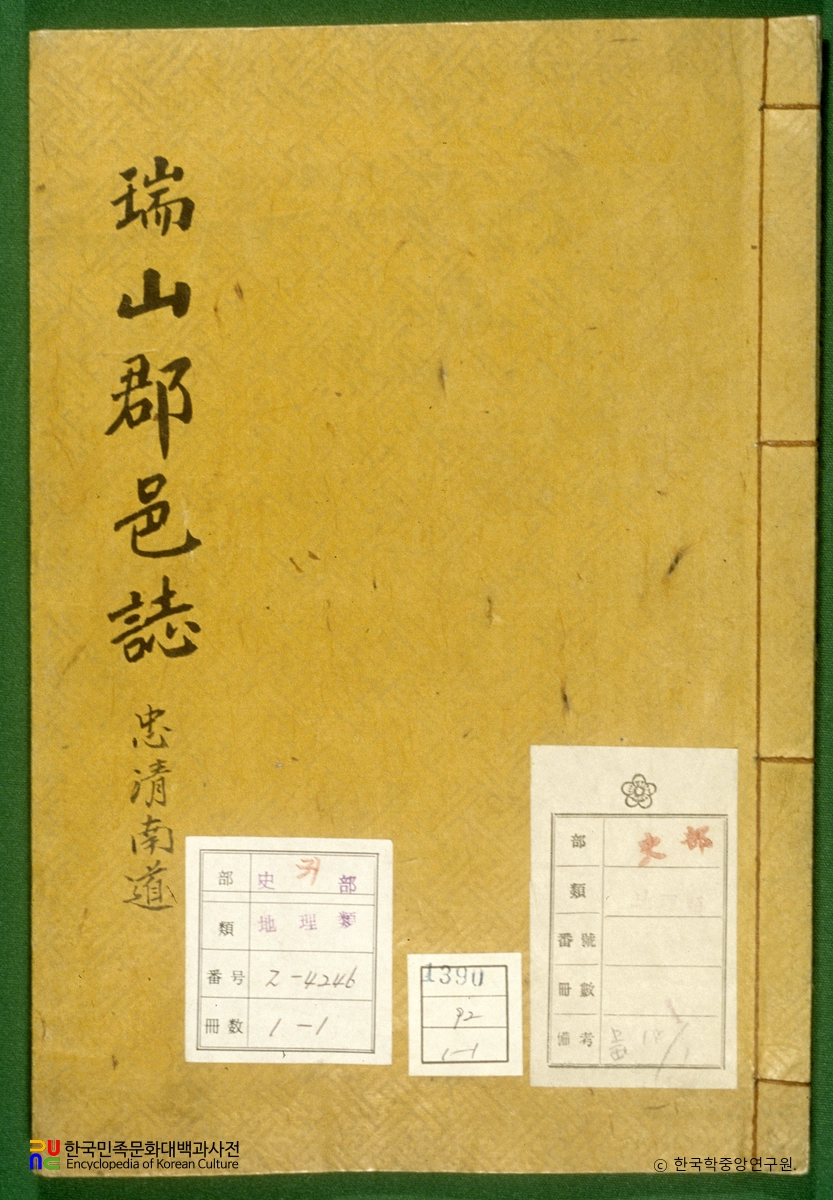 瑞山郡邑誌
忠清南道
部 史 귀 部
類 地理類
番号 2-4246
冊数 1-1
1390
92
1-1
部 史部
類
番號
冊數
備考
한국민족문화대백과사전
Encyclopedia of Korean Culture
© 한국학중앙연구원